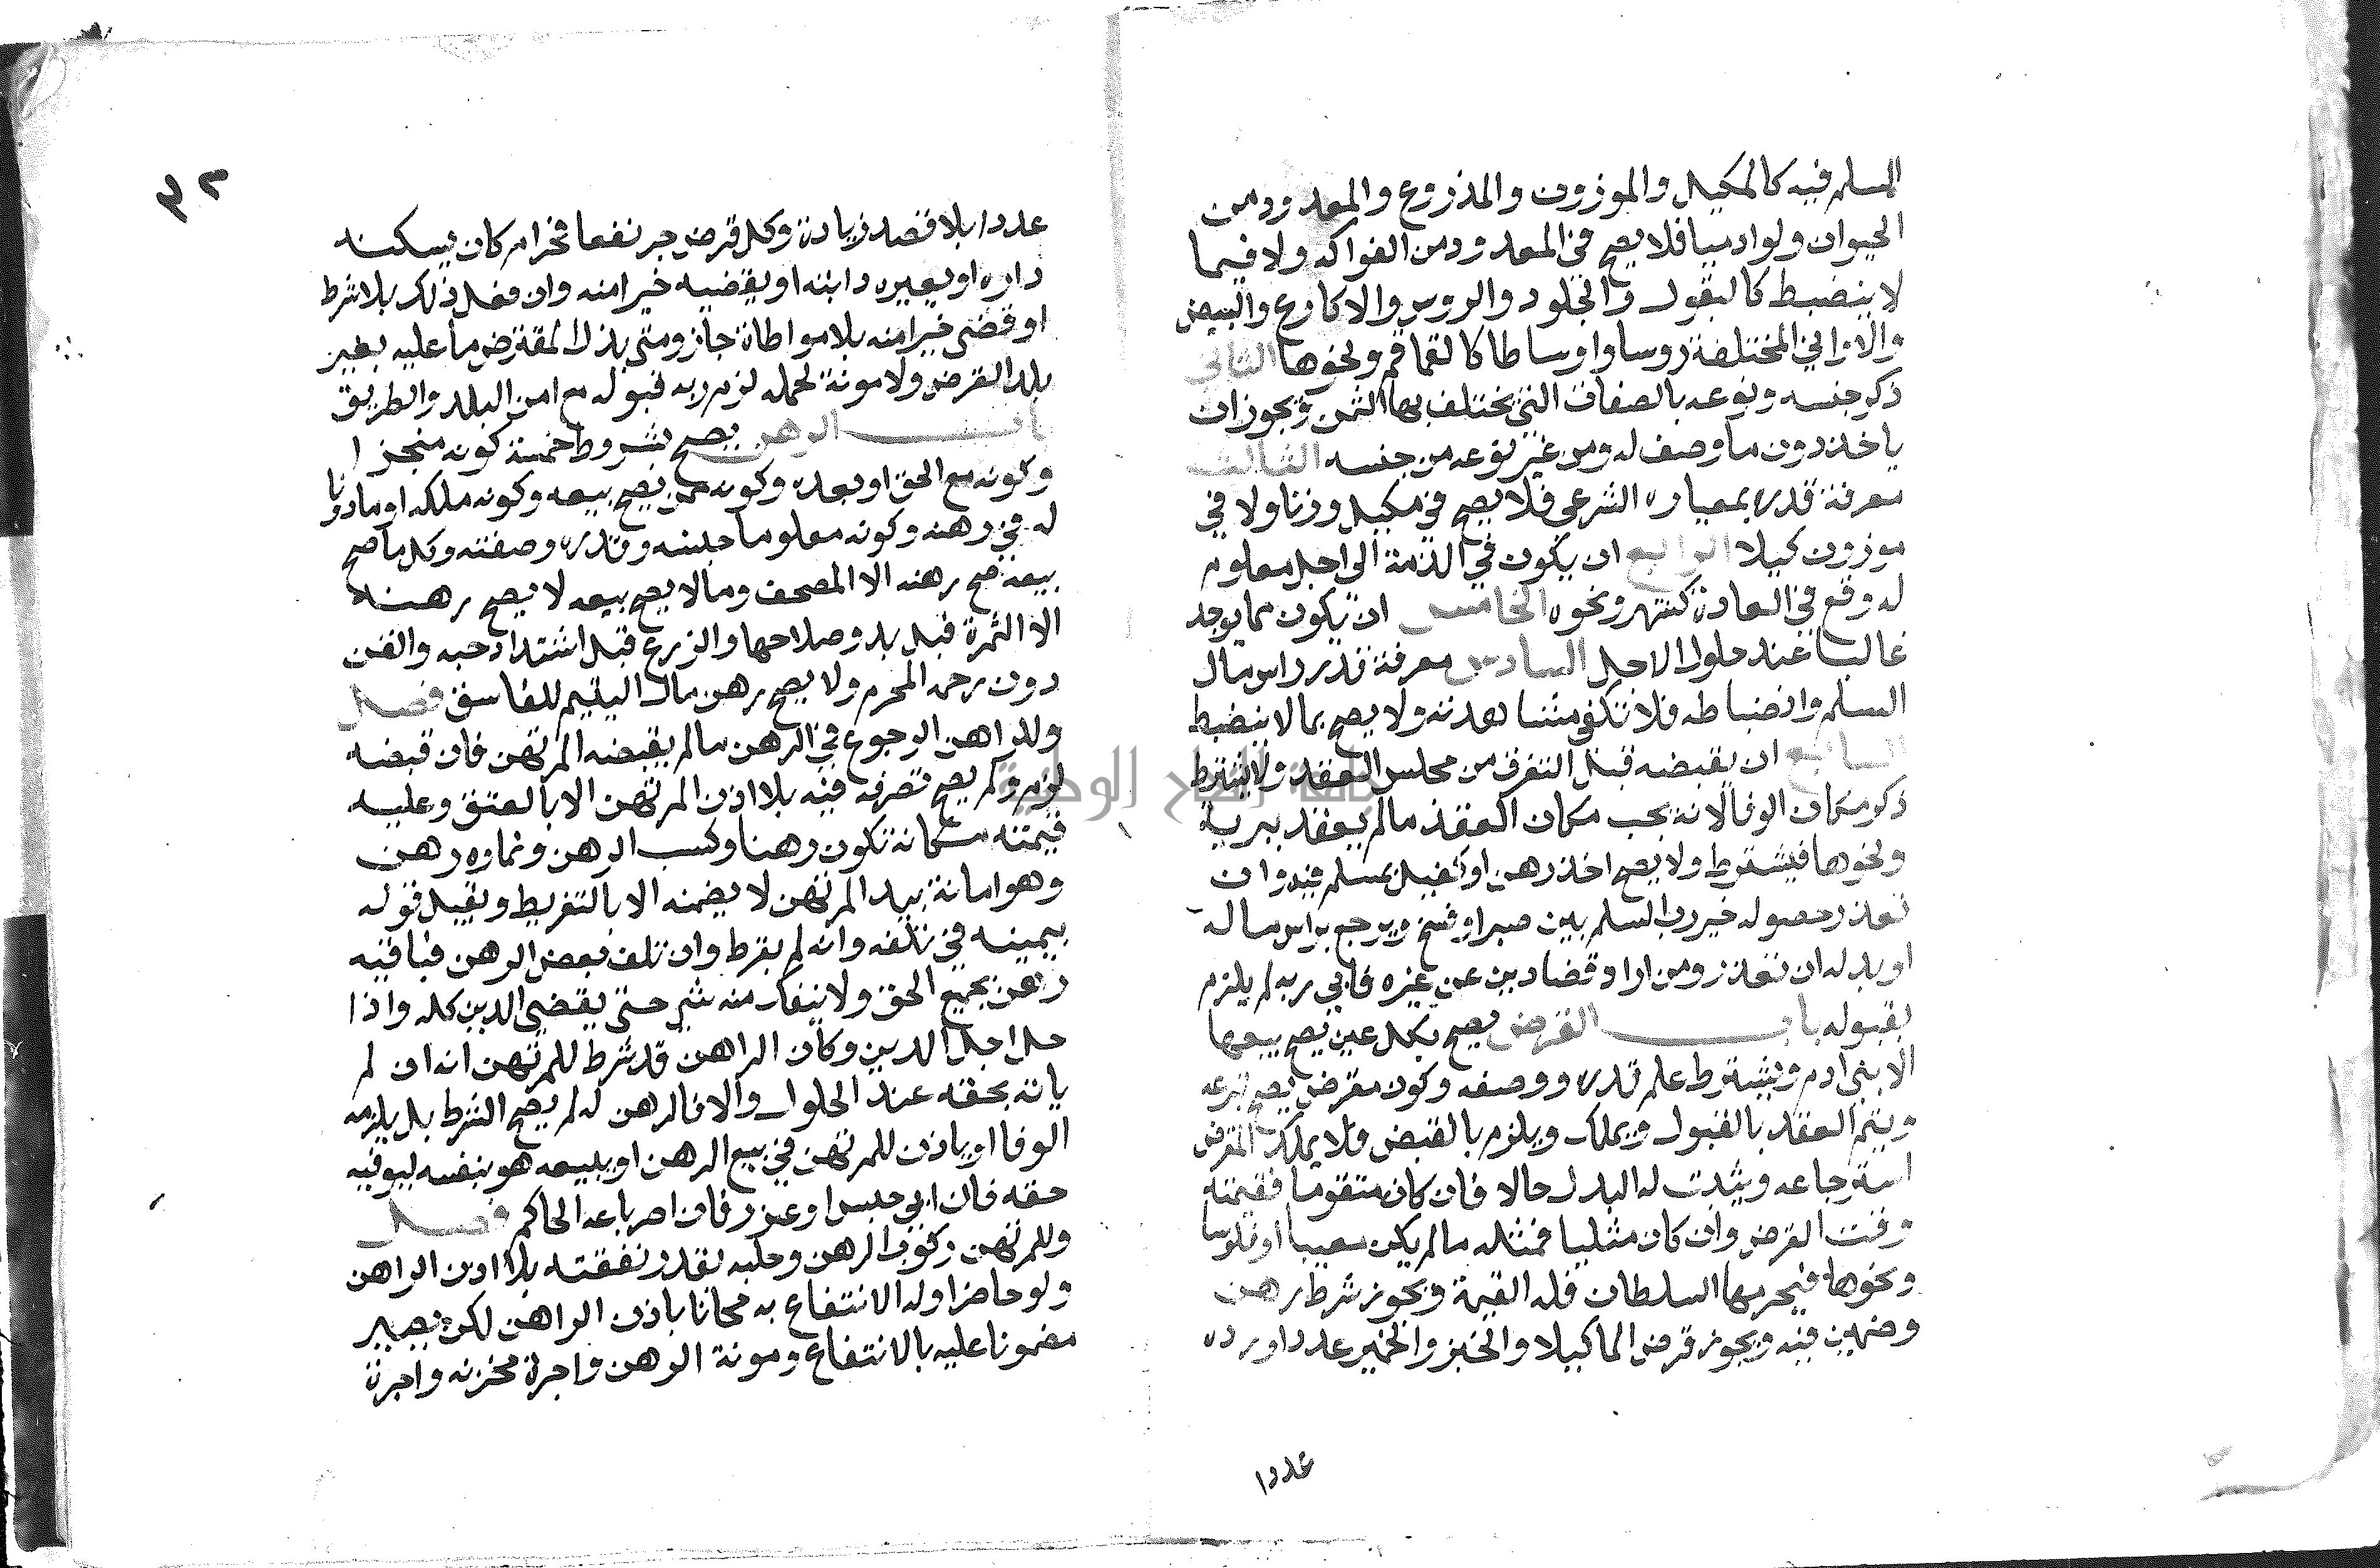 المسلم فيه كالمكيل والموزون والمذروع والمعدود من
الحيوان ولو ادميا فلا يصح في المعدود من الفواكه ولا فيما
لا ينضبط كالبقول والجلود والروس والاكارع والبيض
والاواني المختلفة روسا واوساطا كالقماقم ونحوها الثاني
ذكر جنسه ونوعه بالصفات التي يختلف بها الثمن ويجوز ان
ياخذ دون ما وصف له ومن غير نوعه من جنسه الثالث
معرفة قدره بمعياره الشرعي فلا يصح في مكيل وزنا ولا في
موزون كيلا الرابع ان يكون في الذمة الى اجل معلوم
له وقع في العادة كشهر ونحوه الخامس ان يكون مما يوجد
غالبا عند حلول الاجل السادس معرفة قدر راس مال
السلم وانضباطه فلا تكفي مشاهدته ولا يصح بما لا ينضبط
السابع ان يقبضه قبل التفرق من مجلس العقد ولا يشترط
ذكر مكان الوفا لانه يجب مكان العقد ما لم يعقد ببرية
ونحوها فيشترط ولا يصح اخذ رهن او كفيل بمسلم فيه وان
تعذر حصوله خير رب السلم بين صبر او فسخ ويرجع براس ماله
او بدله ان تعذر ومن اراد قضا دين عن غيره فابى ربه لم يلزم
بقبوله باب القرض يصح بكل عين يصح بيعها
الا بني ادم ويشترط علم قدره ووصفه وكون مقرض يصح تبرعه
ويتم العقد بالقبول ويملك ويلزم بالقبض فلا يملك المقرض
استرجاعه ويثبت له البدل حالا فان كان متقوما فقيمته
وقت القرض وان كان مثليا فمثله ما لم يكن معيبا او فلوسا
ونحوها فيحرمها السلطان فله القيمة ويجوز شرط رهن
وضمين فيه ويجوز قرض الما كيلا والخبز والخمير عددا ورده
عددا
٣٢
عددا بلا قصد زيادة وكل قرض جر نفعا فحرام كان يسكنه
داره او يعيره دابته او يقضيه خيرا منه وان فعل ذلك بلا شرط
او قضى خيرا منه بلا مواطاة جاز ومتى بذل المقترض ما عليه بغير
بلد القرض ولا مونة لحمله لزم ربه قبوله مع امن البلد والطريق
باب الرهن يصح بشروط خمسة كونه منجزا
وكونه مع الحق او بعده وكونه ممن يصح بيعه وكونه ملكه او ماذونا
له في رهنه وكونه معلوما جنسه وقدره وصفته وكل ما صح
بيعه صح رهنه الا المصحف وما لا يصح بيعه لا يصح رهنه
الا الثمرة قبل بدو صلاحها والزرع قبل اشتداد حبه والقن
دون رحمه المحرم ولا يصح رهن مال اليتيم للفاسق فصل
وللراهن الرجوع في الرهن ما لم يقبضه المرتهن فان قبضه
لزم ولم يصح تصرفه فيه بلا اذن المرتهن الا بالعتق وعليه
قيمته مكانه تكون رهنا وكسب الرهن ونماوه رهن
وهو امانة بيد المرتهن لا يضمنه الا بالتفريط ويقبل قوله
بيمينه في تلفه وانه لم يفرط وان تلف بعض الرهن فباقيه
رهن بجميع الحق ولا ينفك منه شي حتى يقضى الدين كله واذا
حل اجل الدين وكان الراهن قد شرط للمرتهن انه ان لم
ياته بحقه عند الحلول والا فالرهن له لم يصح الشرط بل يلزمه
الوفا او ياذن للمرتهن في بيع الرهن او يبيعه هو بنفسه ليوفيه
حقه فان ابى حبس او عزر فان اصر باعه الحاكم فصل
وللمرتهن ركوب الرهن وحلبه بقدر نفقته بلا اذن الراهن
ولو حاضرا وله الانتفاع به مجانا باذن الراهن لكن يصير
مضمونا عليه بالانتفاع ومونة الرهن واجرة مخزنه واجرة